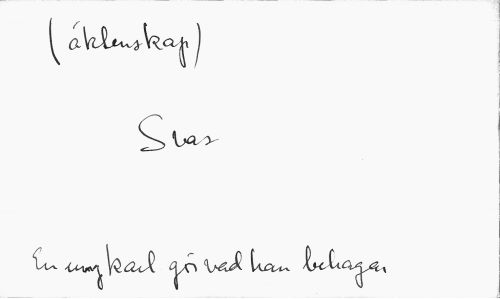 (äktenskap)
Svar
En ungkarl gör vad han behagar